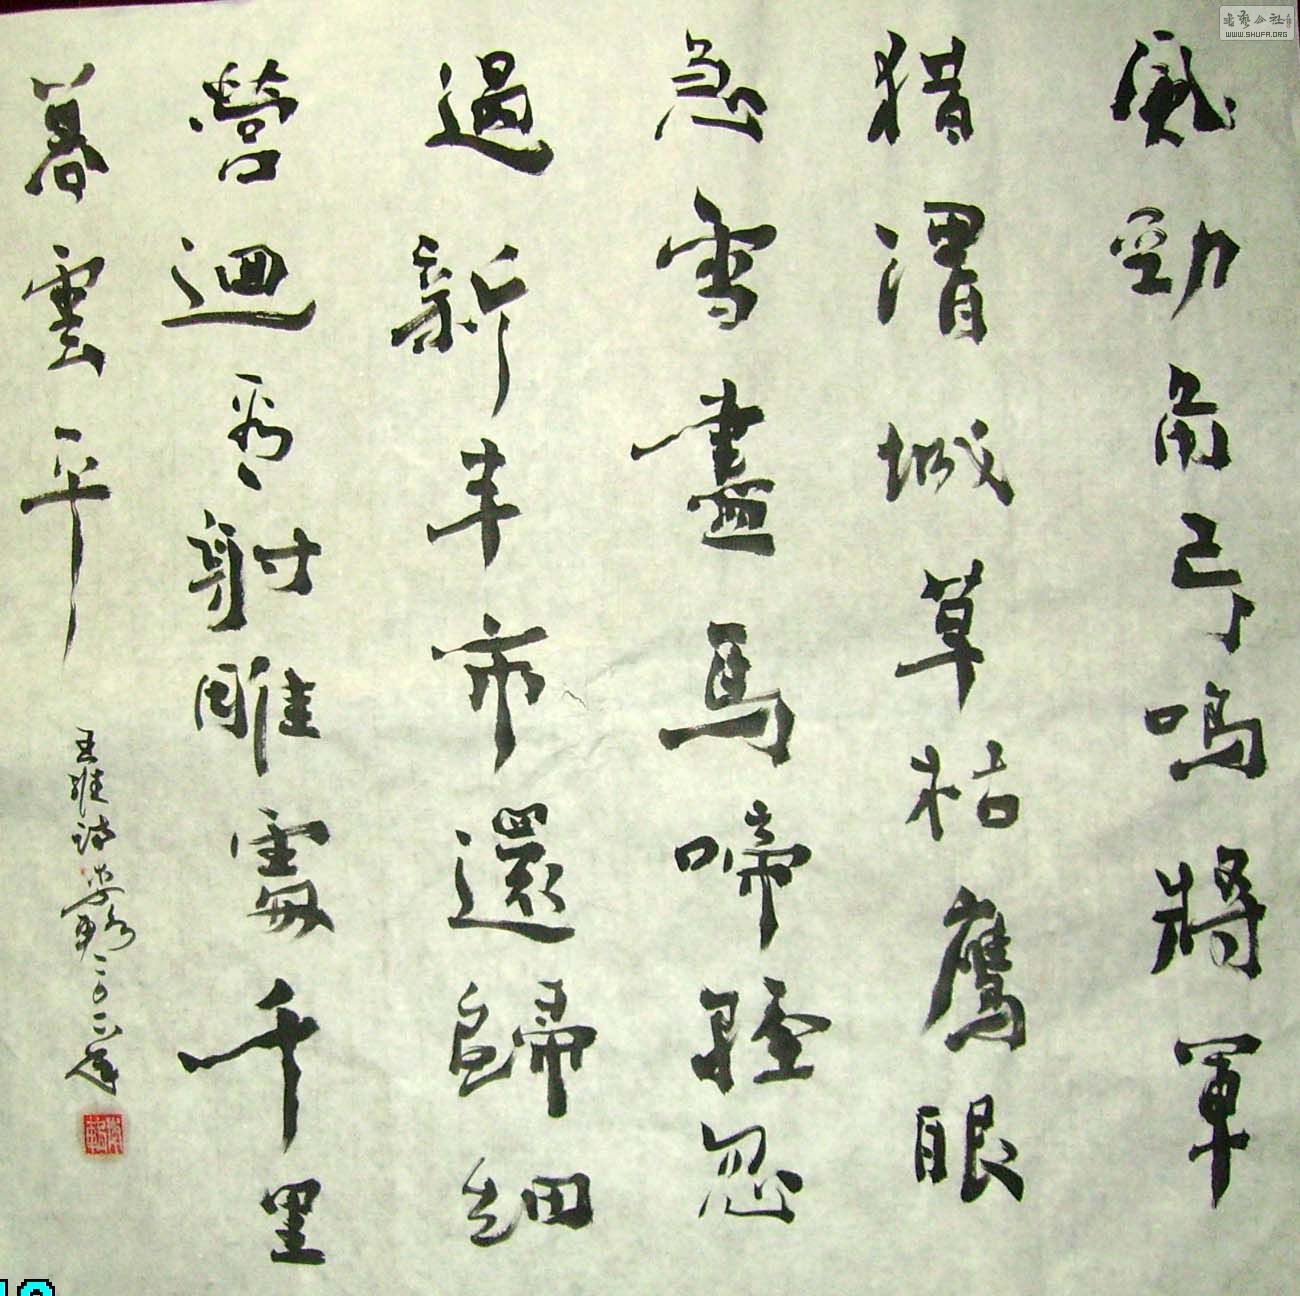 風勁角弓鳴將軍
猎渭城草枯鷹眼
急雪盡馬啼輕忽
過新丰市還歸細
營迴看射雕處千里
暮雲平
王維詩
書藝公社
WWW.SHUFA.ORG